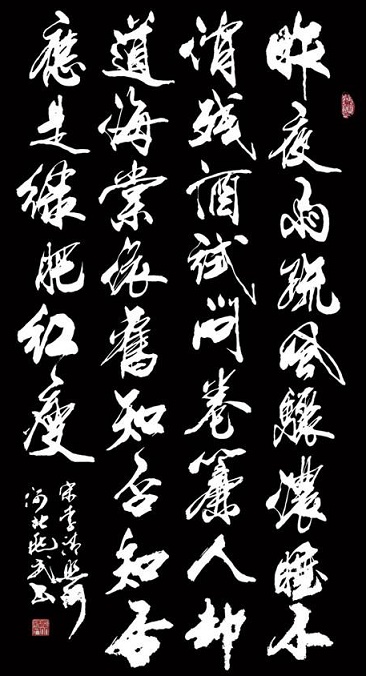 昨夜雨疏風驟濃睡不
消残酒試問卷簾人却
道海棠依舊知否知否
應是緑肥紅瘦
宋李清照詞
河北